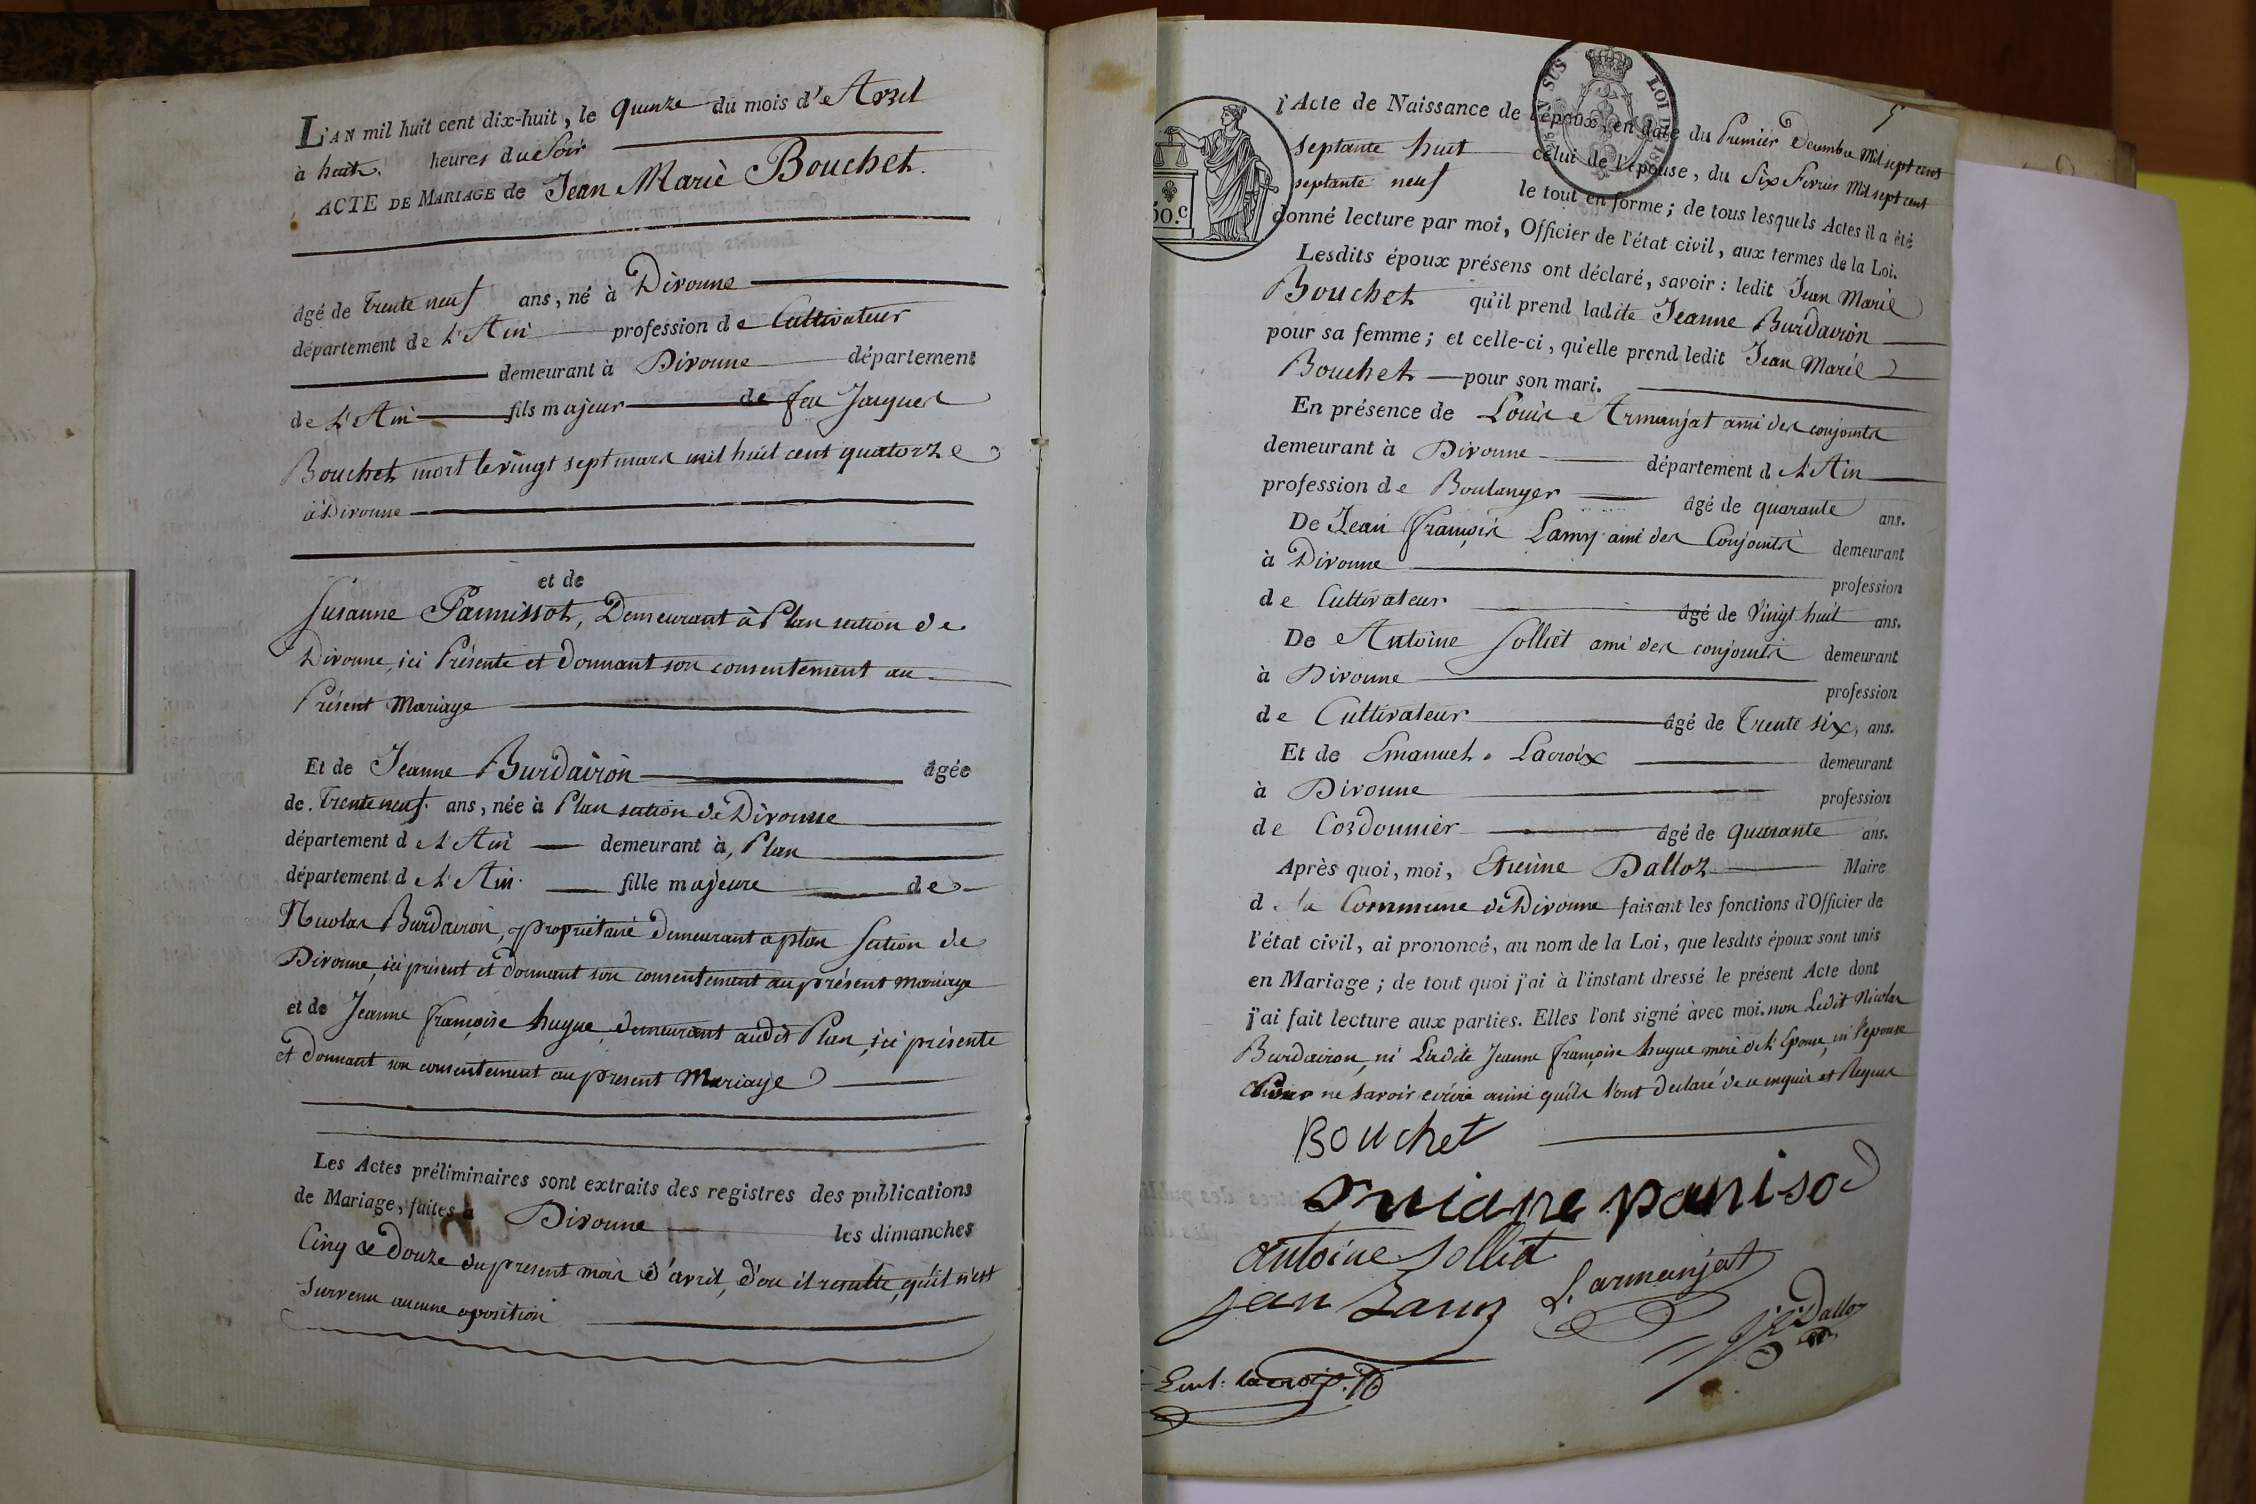 L'AN mil huit cent dix-huit, le quinze du mois d'Avril
à huit heures du Soir
ACTE DE MARIAGE de Jean Marie Bouchet.
âgé de trente neuf ans, né à Divonne
département de L'Ain profession de Cultivateur
demeurant à Divonne département
de L'Ain fils majeur de feu Jacques
Bouchet mort le vingt sept mars mil huit cent quatorze
à Divonne
et de
Susanne Pannissot, Demeurant à Plan section de
Divonne, ici Présente et donnant son consentement au
Présent Mariage
Et de Jeanne Burdairon âgée
de Trente neuf ans, née à Plan section de Divonne
département de L'Ain demeurant à Plan
département de L'Ain fille majeure de
Nicolas Burdairon, propriétaire demeurant a plan Section de
Divonne, ici présent et donnant son consentement au présent mariage
et de Jeanne françoise hugue, demeurant audit Plan, ici présente
et donnant son consentement au present Mariage
Les Actes préliminaires sont extraits des registres des publications
de Mariage, faites à Divonne les dimanches
Cinq & Douze du present mois d'avril, d'ou il resulte, qu'il n'est
survenu aucune oposition
5
SUS LOI DE
50.c
l'Acte de Naissance de l'époux, en date du Premier Decembre Mil sept cent
septante huit celui de l'épouse, du Six Fevrier Mil sept cent
septante neuf le tout en forme; de tous lesquels Actes il a été
donné lecture par moi, Officier de l'état civil, aux termes de la Loi.
Lesdits époux présens ont déclaré, savoir: ledit Jean Marie
Bouchet qu'il prend ladite Jeanne Burdairon
pour sa femme; et celle-ci, qu'elle prend ledit Jean Marie
Bouchet pour son mari.
En présence de Louis Armanjat ami des conjoints
demeurant à Divonne département de L'Ain
profession de Boulanger âgé de quarante ans.
De Jean François Lamy ami des Conjoints demeurant
à Divonne profession
de Cultivateur âgé de Vingt huit ans.
De Antoine Solliet ami des conjoints demeurant
à Divonne profession
de Cultivateur âgé de Trente six, ans.
Et de Emanuel Lacroix demeurant
à Divonne profession
de Cordonnier âgé de quarante ans.
Après quoi, moi, Etienne Dalloz Maire
de la Commune de Divonne faisant les fonctions d'Officier de
l'état civil, ai prononcé, au nom de la Loi, que lesdits époux sont unis
en Mariage; de tout quoi j'ai à l'instant dressé le présent Acte dont
j'ai fait lecture aux parties. Elles l'ont signé avec moi. non Ledit Nicolas
Burdairon, ni Ladite Jeanne françoise hugue mere de L'Epouse, ni l'épouse
ne savoir ecrire ainsi qu'ils l'ont declaré de ce enquis et Requis
Bouchet
paniso
antoine Sollict
L. armanjat
jan Lamy
Dalloz
Eml. lacroix